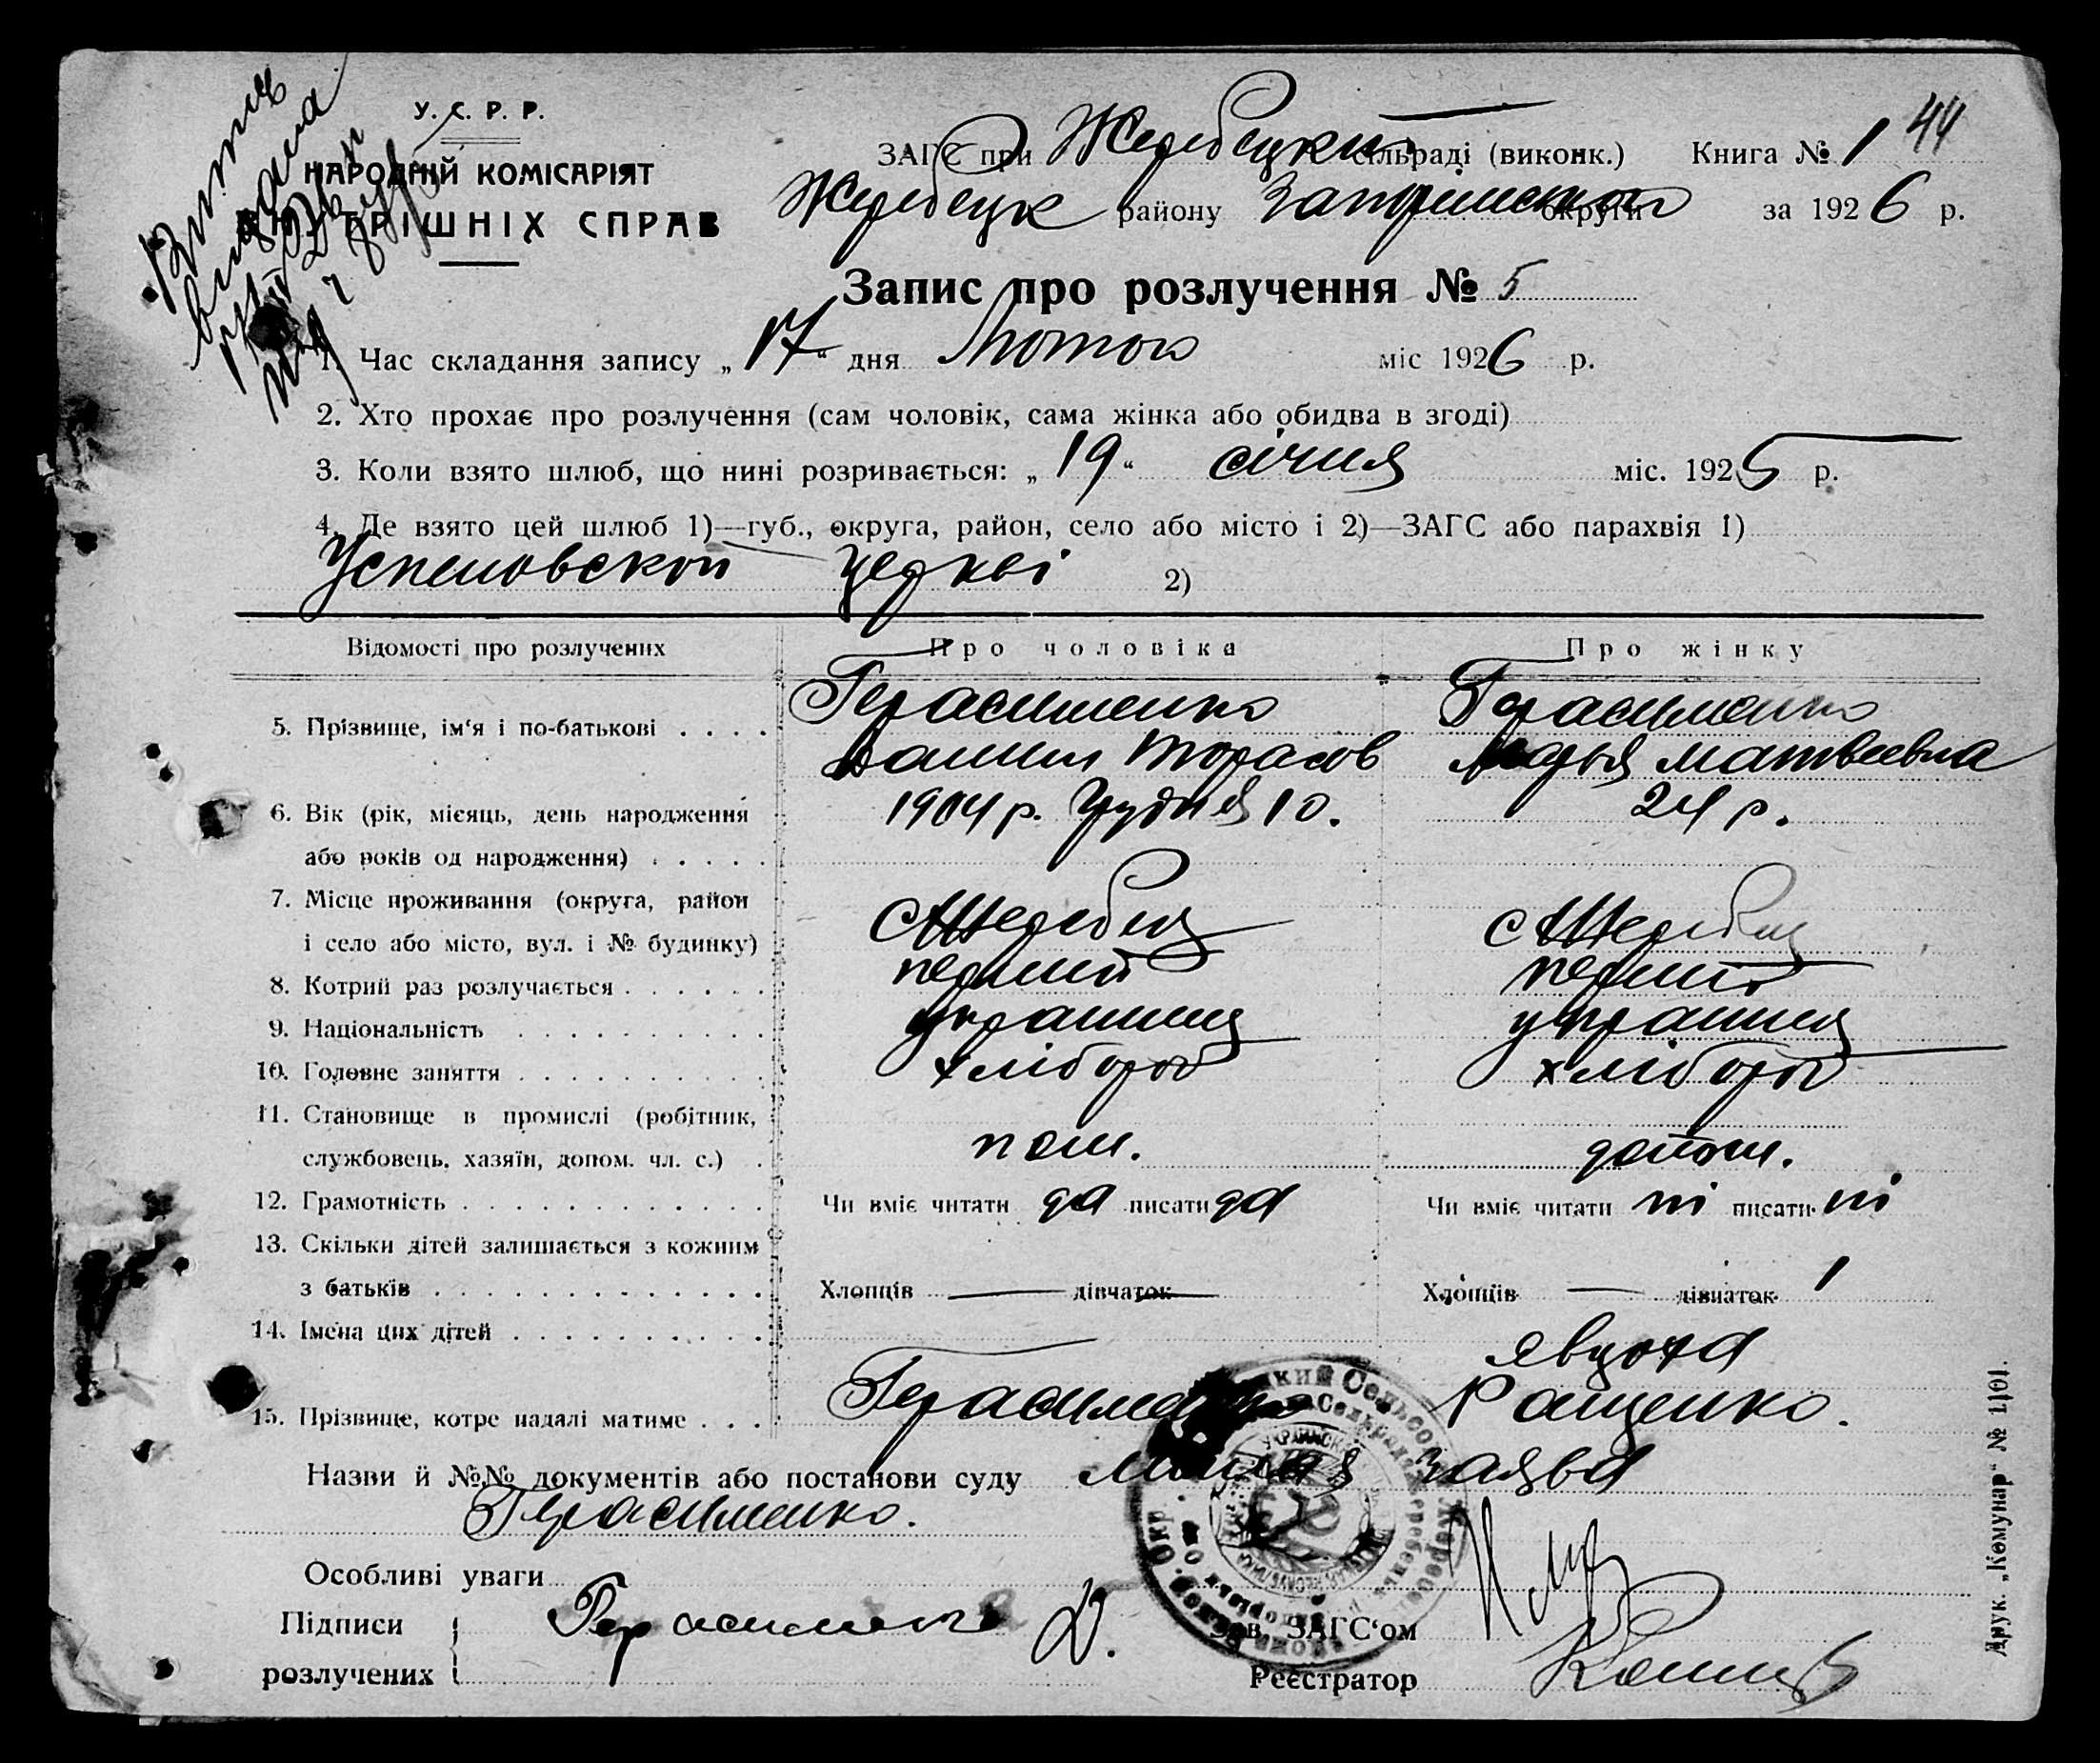 У. С. Р. Р.
НАРОДНІЙ КОМІСАРІЯТ
ВНУТРІШНІХ СПРАВ
ЗАГС при Жеребецкий сільраді (виконк.) Книга № 1 44
Жеребецк району Запоріжської округи за 1926 р.
Запис про розлучення № 5
1. Час складання запису „17“ дня Лютого міс 1926 р.
2. Хто прохає про розлучення (сам чоловік, сама жінка або обидва в згоді)
3. Коли взято шлюб, що нині розривається: „19“ січня міс. 1925 р.
4. Де взято цей шлюб 1)—губ., округа, район, село або місто і 2)—ЗАГС або парахвія 1)
Успеновской церкві 2)
Відомості про розлучених Про чоловіка Про жінку
5. Прізвище, ім‘я і по-батькові . . . . Герасименко Герасименко
Данил Тарасов Марья Матвеевна
6. Вік (рік, місяць, день народження 1904 р. Грудня 10. 24 р.
або років од народження) . . . . .
7. Місце проживання (округа, район с Жеребец с Жеребец
і село або місто, вул. і № будинку)
8. Котрий раз розлучається . . . . . . перший перший
9. Національність . . . . . . . . . . українец українец
10. Головне заняття . . . . . . . . . хлібороб хлібороб
11. Становище в промислі (робітник,
службовець, хазяїн, допом. чл. с.) .
12. Грамотність . . . . . . . . . . . . Чи вміє читати да писати да Чи вміє читати ні писати ні
13. Скільки дітей залишається з кожним
з батьків . . . . . . . . . . . . . . Хлопців — дівчаток — Хлопців — дівчаток 1
14. Імена цих дітей . . . . . . . . . . — Явдоха
15. Прізвище, котре надалі матиме . . . Герасименко Ращенко.
Назви й №№ документів або постанови суду заява
Герасименко.
Особливі уваги
Підписи Герасименко Д. Зав. ЗАГС‘ом
розлучених Реєстратор
Друк. „Комунар“ № 1101.